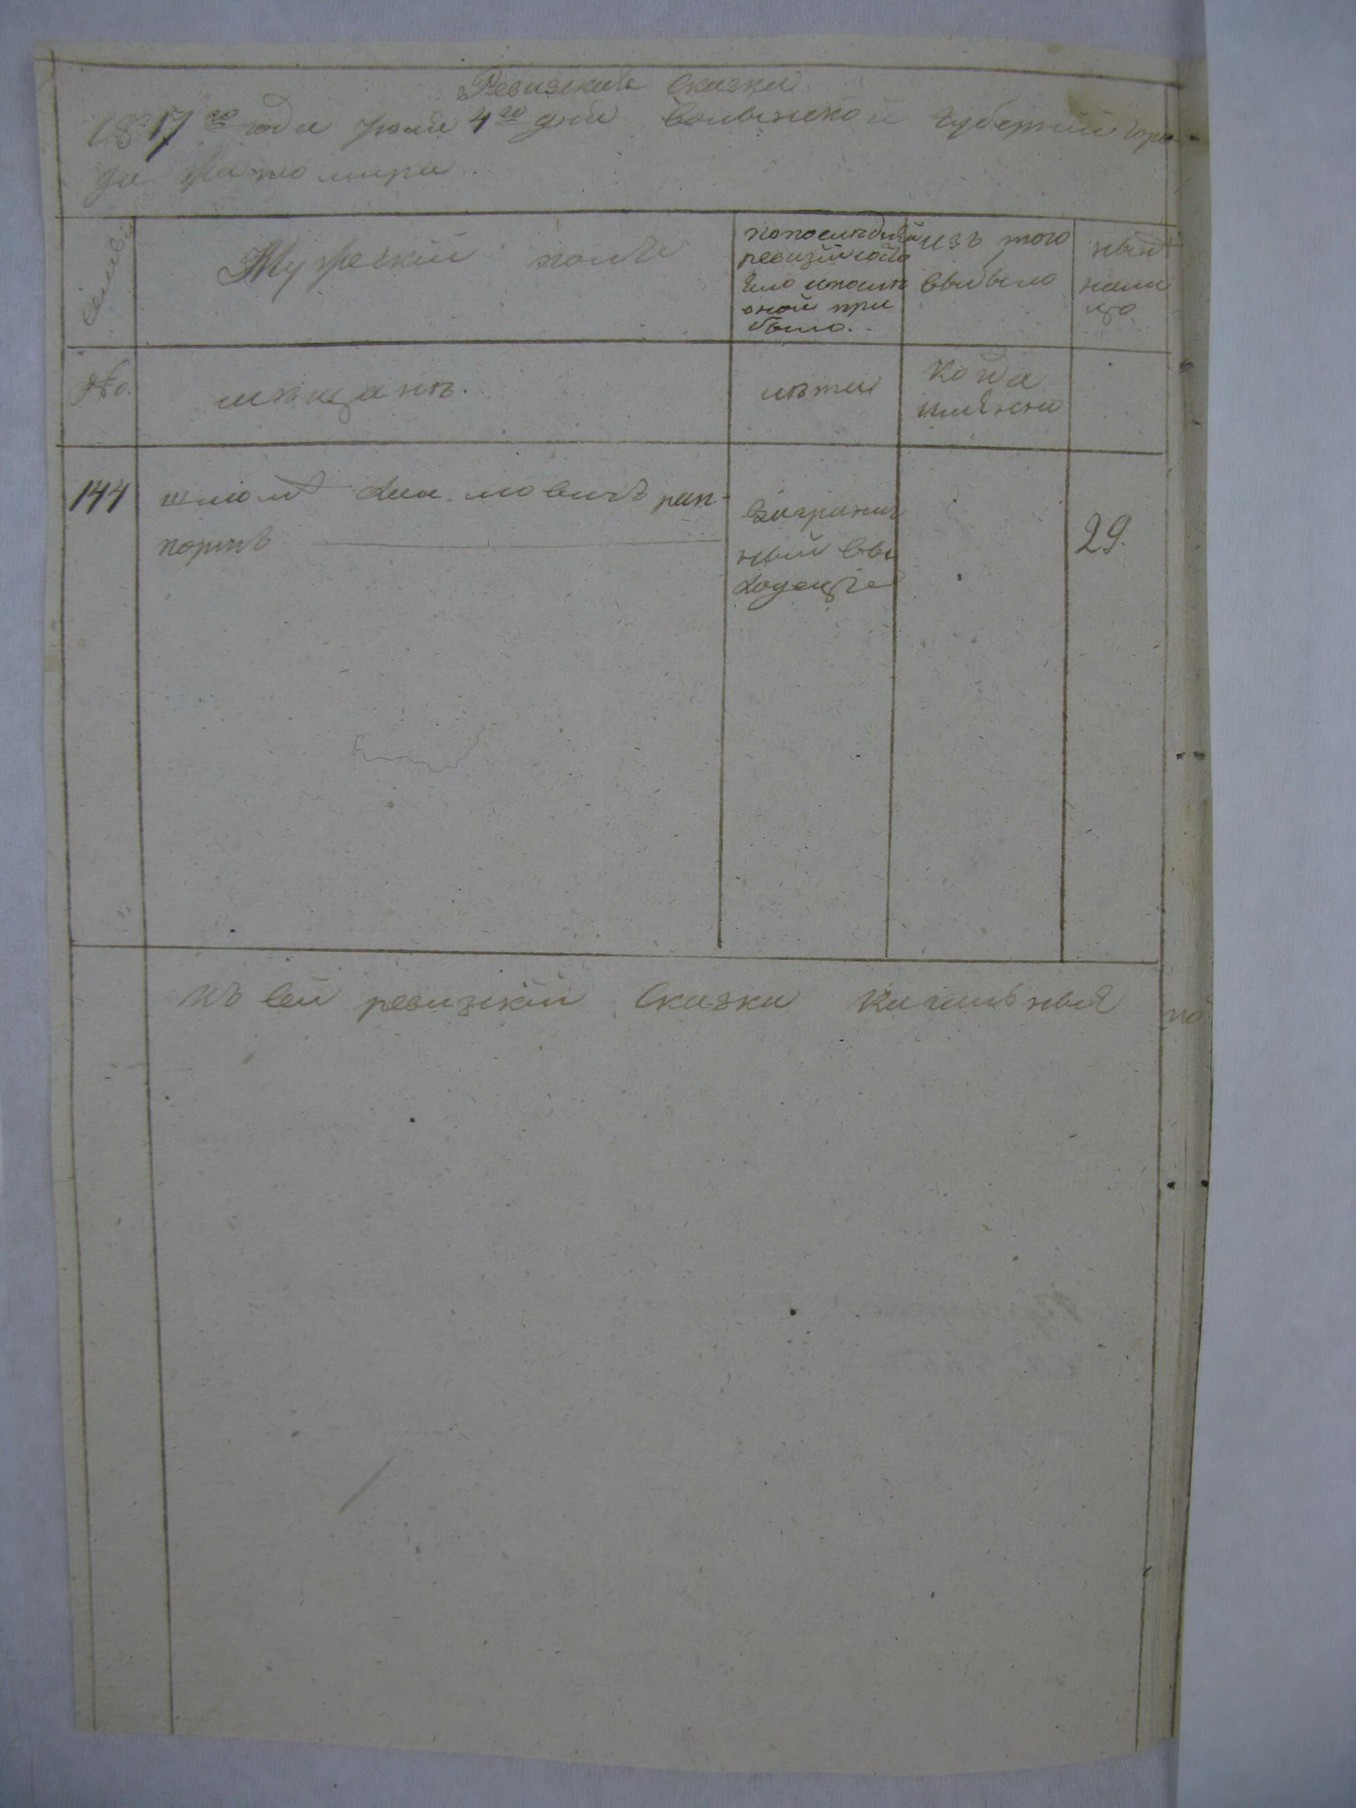 Ревизская Сказка
1817го года Июля 4го дня Волынской Губернии горо-
да житомира
семьи
Мужеский полъ
по последней
ревизии состо
яло и после
оной при
было.
изъ того
выбыло
ныне
нали
цо
No.
мещанъ.
лета
Когда
имянно
144
шлома Хаимовичъ рап-
портъ
Заграни
ный вы
ходецъ
29.
къ сей ревизкой Сказки Кагальные по